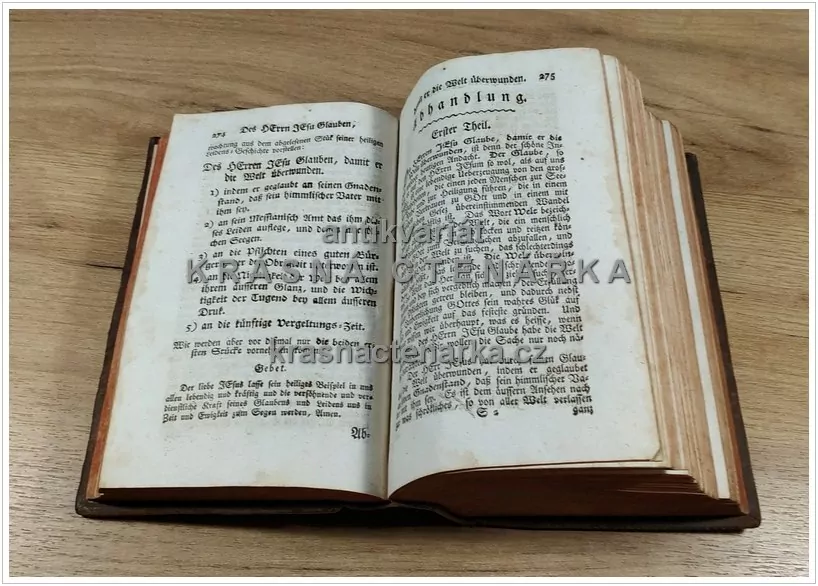 274 Des HErrn JEsu Glauben,
trachtung aus dem abgelesenen Stük seiner heiligen
Leidens-Geschichte vorstellen:
Des HErren JEsu Glauben, damit er
die Welt überwunden.
1) indem er geglaubt an seinen Gnaden-
stand, daß sein himmlischer Vater mit
ihm sey.
2) an sein Messianisch Amt das ihm
Leiden auflege, und den
chen Seegen.
3) an die Pflichten eines guten Bür-
der Obrigkeit unterworfen ist.
4) an die
ihrem äusseren Glanz, und die Wich-
tigkeit der Tugend bey allem äusseren
Druk.
5) an die künftige Vergeltungs-Zeit.
Wir werden aber vor dismal nur die beiden er-
sten Stücke vornehmen
Gebet.
Der liebe JEsus lasse sein heiliges Beispiel in uns
allen lebendig und kräftig und die versöhnende und ver-
dienstliche Kraft seines Glaubens und Leidens uns in
Zeit und Ewigkeit zum Segen werden, Amen.
Ab-
er die Welt überwunden. 275
Abhandlung.
Erster Theil.
HErren JEsu Glaube, damit er die
überwunden, ist denn der schöne In-
Andacht. Der Glaube, so
HErrn JEsum so wol, als auf uns
lebendige Ueberzeugung von den gros-
die einen jeden Menschen zur See-
Heiligung führen, die in einem
zu GOtt und in einem mit
Gesez übereinstimmenden Wandel
ist. Das Wort Welt bezeich-
Welt, die ein menschlich
und reitzen kön-
abzufallen, und
zu suchen, das schlechterdings
Die Welt überwin-
machen, der Erfüllung
getreu bleiben, und dadurch nebst
GOttes sein wahres Glük auf
Ewigkeit auf das festeste gründen. Und
wir überhaupt, was es heisse, wenn
JEsu Glaube habe die Welt
wollen die Sache nur noch nä-
Der HErr JEsus hat durch den Glau-
überwunden, indem er geglaubt
Gnadenstand, daß sein himmlischer Va-
mit ihm sey. Es ist dem äussern Ansehen nach
was schrökliches, so von aller Welt verlassen
S 2 ganz
antikvariát
KRÁSNÁ ČTENÁŘKA
krasnactenarka.cz